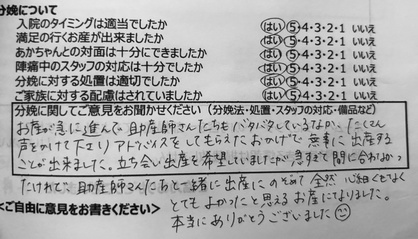 分娩について
入院のタイミングは適当でしたか はい 5・4・3・2・1 いいえ
満足の行くお産が出来ましたか はい 5・4・3・2・1 いいえ
あかちゃんとの対面は十分にできましたか はい 5・4・3・2・1 いいえ
陣痛中のスタッフの対応は十分でしたか はい 5・4・3・2・1 いいえ
分娩に対する処置は適切でしたか はい 5・4・3・2・1 いいえ
ご家族に対する配慮はされていましたか はい 5・4・3・2・1 いいえ
分娩に関してご意見をお聞かせください（分娩法・処置・スタッフの対応・備品など）
お産が急に進んで助産師さんたちもバタバタしているなか、たくさん
声をかけて下さりアドバイスをしてもらえたおかげで無事に出産する
ことが出来ました。立ち会い出産を希望していましたが急すぎて間に合わなかっ
たけれど、助産師さんたちと一緒に出産にのぞめて全然心細くもなく
とてもよかったと思えるお産になりました。
＜ご自由に意見をお書きください＞ 本当にありがとうございました